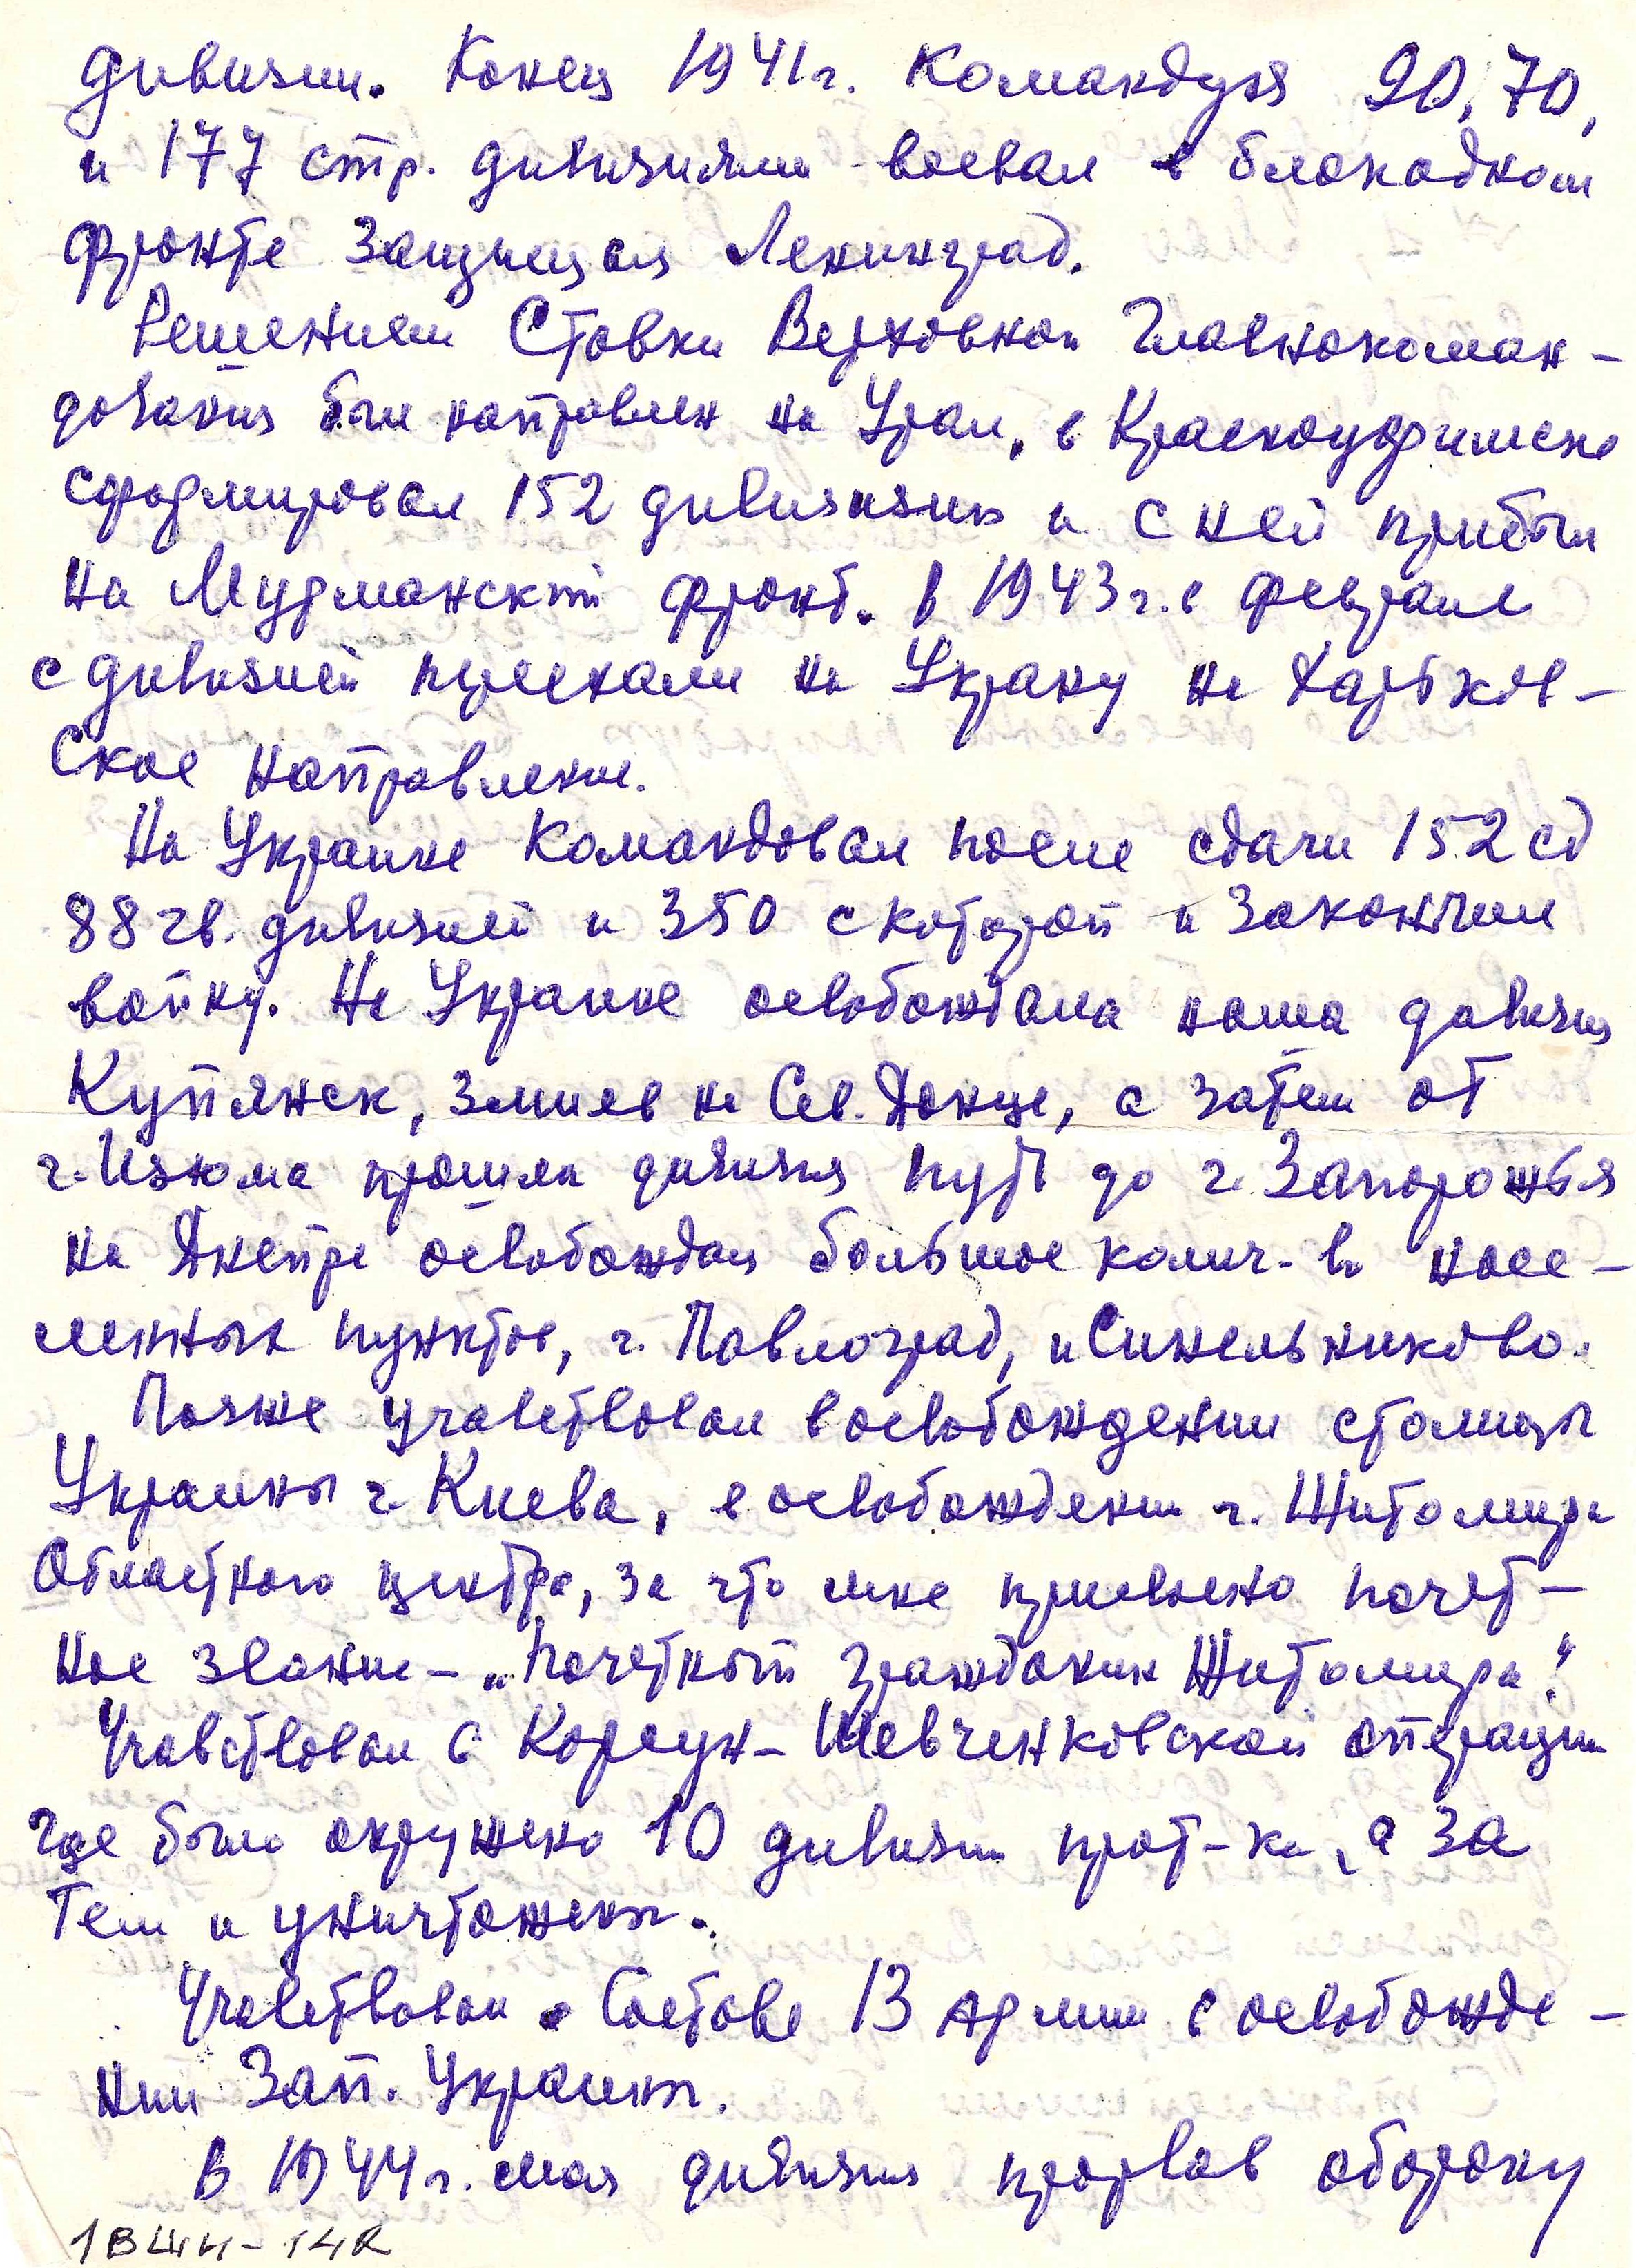 дивизии. Конец 1941 г. командуя 90, 70,
и 177 стр. дивизиями воевал в блокадном
фронте защищая Ленинград.
Решением Ставки Верховного Главнокоман-
дования был направлен на Урал, в Красноуфимске
сформировал 152 дивизию и с ней прибыл
на Мурманский фронт. В 1943 г. в феврале
с дивизией приехали на Украину на Харьков-
ское направление.
На Украине командовал после сдачи 152 сд
88 гв. дивизией и 350 с которой и закончил
войну. На Украине освобождала наша дивизия
Купянск, Змиев на Сев. Донце, а затем от
г. Изюма прошла дивизия путь до г. Запорожья
на Днепре освобождая большое колич-во насе-
ленных пунктов, г. Павлоград, и Синельниково.
Позже участвовал в освобождении столицы
Украины г. Киева, в освобождении г. Житомира
Областного центра, за что мне присвоено почет-
ное звание - „Почетный гражданин Житомира".
Участвовал в Корсун-Шевченковской операции
где было окружено 10 дивизий прот-ка, а за
тем и уничтожены.
Участвовал в составе 13 армии в освобожде-
нии Зап. Украины.
В 1944 г. моя дивизия прорвав оборону